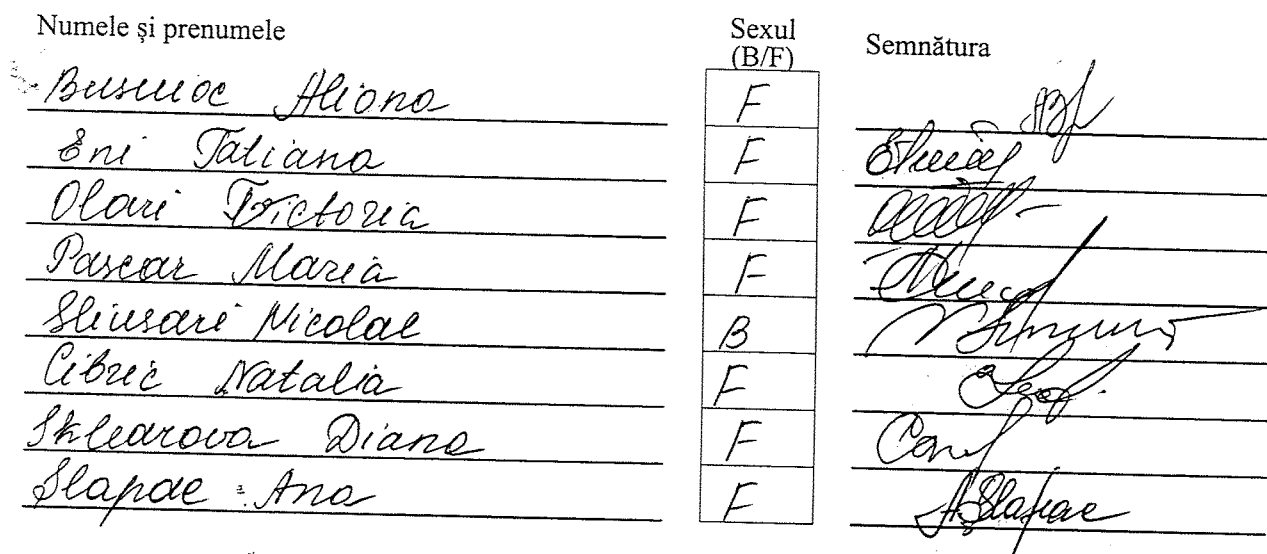 Numele și prenumele Sexul (B/F) Semnătura
Busuioc Aliona F
Eni Tatiana F
Olari Victoria F
Pascar Maria F
Sliusari Nicolae B
Cibric Natalia F
Sklearova Diana F
Slapac Ana F ASlapac